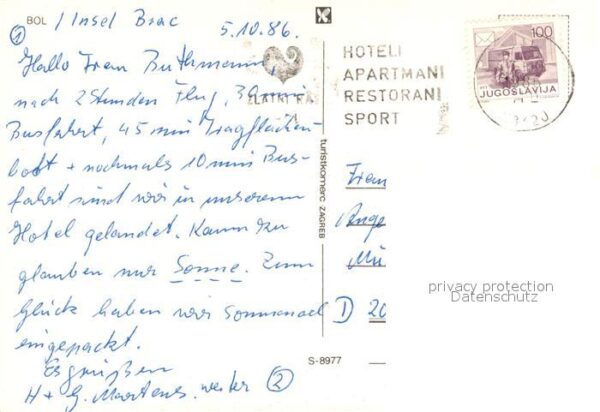 BOL / Insel Brac 5.10.86.
①
Hallo Frau Buthmann,
nach 2 Stunden Flug, 30 min
Busfahrt, 45 min Tragflächen-
boot + nochmals 10 min Bus-
fahrt sind wir in unserem
Hotel gelandet. Kaum zu
glauben nur Sonne. Zum
Glück haben wir Sonnenoel
eingepackt.
Es grüßen
H + G. Martens. weiter ②
ZLATNI RAT
HOTELI
APARTMANI
RESTORANI
SPORT
100
JUGOSLAVIJA
turistkomerc ZAGREB
Frau
Ange
Mü
D 20
privacy protection
Datenschutz
S-8977